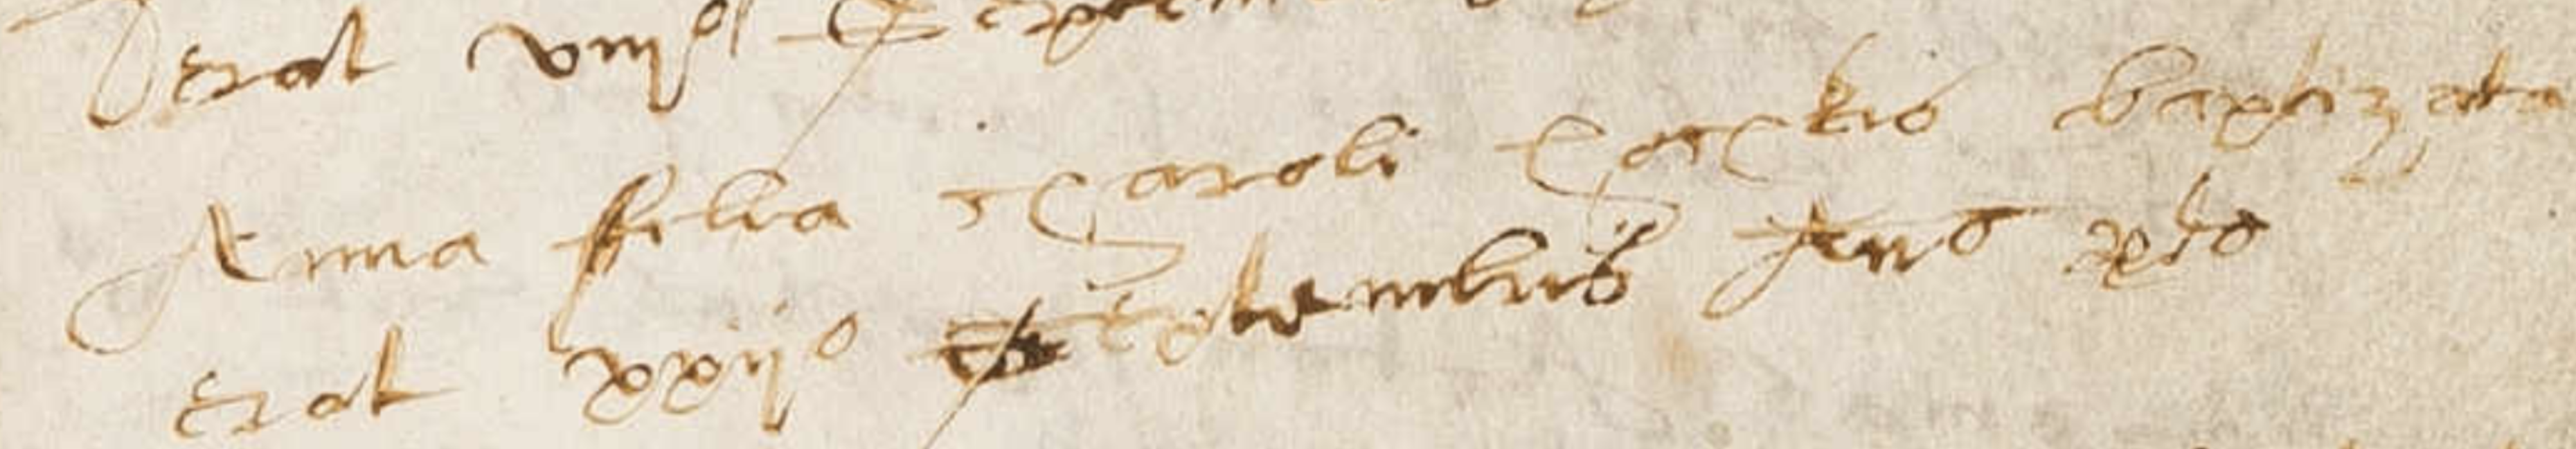 erat viijo Septem
Anna filia Caroli baptizata
erat xxijo Septembris Anno